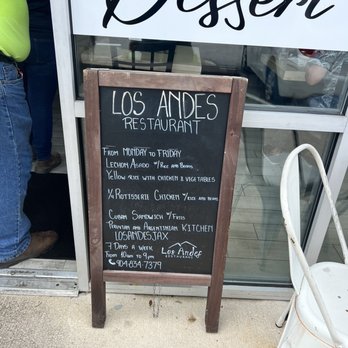 Dessert
LOS ANDES
RESTAURANT
FROM MONDAY TO FRIDAY
LECHON ASADO W/RICE AND BEANS
YELLOW RICE WITH CHICKEN & VEGETABLES
1/4 ROTISSERIE CHICKEN W/RICE AND BEANS
CUBAN SANDWICH W/FRIES
PERUVIAN AND ARGENTINIAN KITCHEN
LOSANDESJAX
7 DAYS A WEEK
FROM 10AM TO 9PM
904-834-7379
Los Andes
RESTAURANT